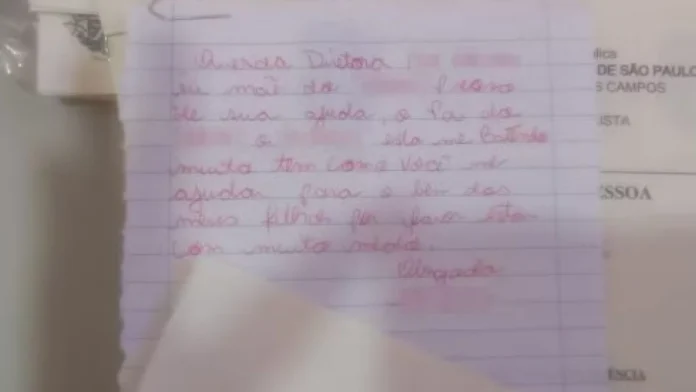 Querida Diretora
eu mãe do Preciso
de sua ajuda, o Pai do
o esta me Batendo
muito tem como você me
ajudar para o bem dos
meus filhos por favor estou
com muito medo.
Obrigada
dica
DE SÃO PAULO
S CAMPOS
ISTA
ESSOA
ÊNCIA